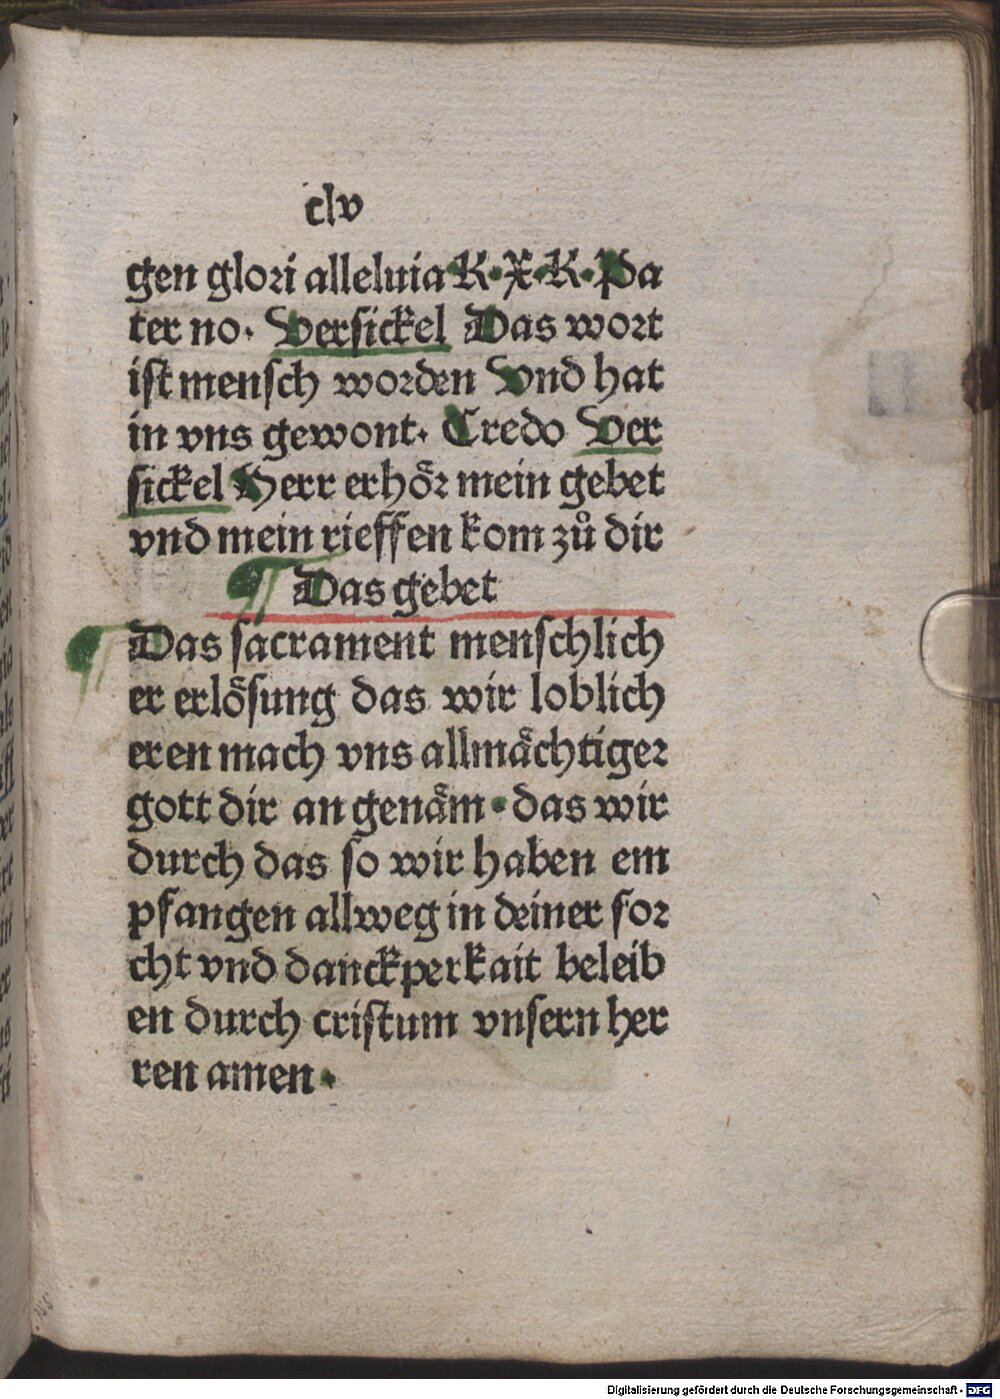 clv
gen glori alleluia K·X·K·Pa
ter no. Versickel Das wort
ist mensch worden Vnd hat
in vns gewont. Credo Ver
sickel Herr erhoͤr mein gebet
vnd mein rieffen kom zů dir
¶ Das gebet
¶ Das sacrament menschlich
er erloͤsung das wir loblich
eren mach vns allmaͤchtiger
gott dir an genaͤm · das wir
durch das so wir haben em
pfangen allweg in deiner for
cht vnd danckperkait beleib
en durch cristum vnsern her
ren amen ·
155
Digitalisierung gefördert durch die Deutsche Forschungsgemeinschaft - DFG